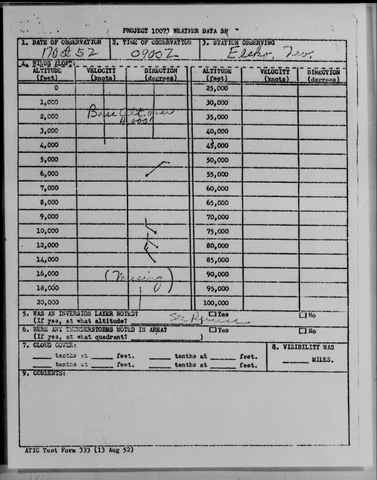 PROJECT 10073 WEATHER DATA
1. DATE OF OBSERVATION 2. TIME OF OBSERVATION 3. STATION OBSERVING
17 Oct 52 0900Z Elko, Nev.
4. WINDS ALOFT:
ALTITUDE (feet) VELOCITY (knots) DIRECTION (degrees) ALTITUDE (feet) VELOCITY (knots) DIRECTION (degrees)
0 25,000
1,000 30,000
2,000 Base 35,000
3,000 40,000
4,000 45,000
5,000 50,000
6,000 55,000
7,000 60,000
8,000 65,000
9,000 70,000
10,000 75,000
12,000 80,000
14,000 85,000
16,000 (Missing) 90,000
18,000 95,000
20,000 100,000
5. WAS AN INVERSION LAYER NOTED? Yes No
(If yes, at what altitude? See
6. WERE ANY THUNDERSTORMS NOTED IN AREA? Yes No
(If yes, at what quadrant? )
7. CLOUD COVER: 8. VISIBILITY WAS
tenths at feet. tenths at feet. MILES.
tenths at feet. tenths at feet.
9. COMMENTS:
ATIC Test Form 333 (13 Aug 52)